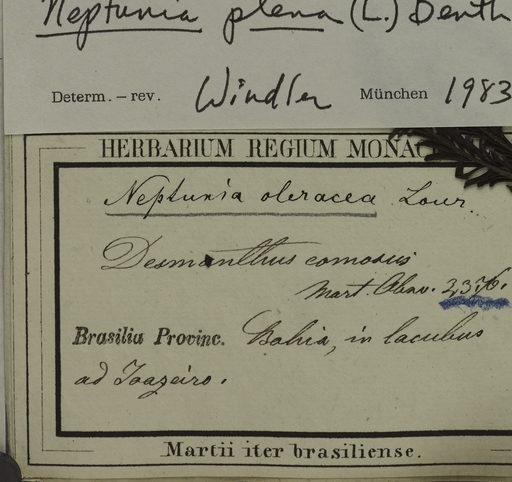 Neptunia plena (L.) Benth
Determ. – rev. Windler München 1983
HERBARIUM REGIUM MONAC
Neptunia oleracea Lour.
Desmanthus comosus
Mart. Obsv. 2376.
Brasilia Provinc. Bahia, in lacubus
ad Joazeiro.
Martii iter brasiliense.